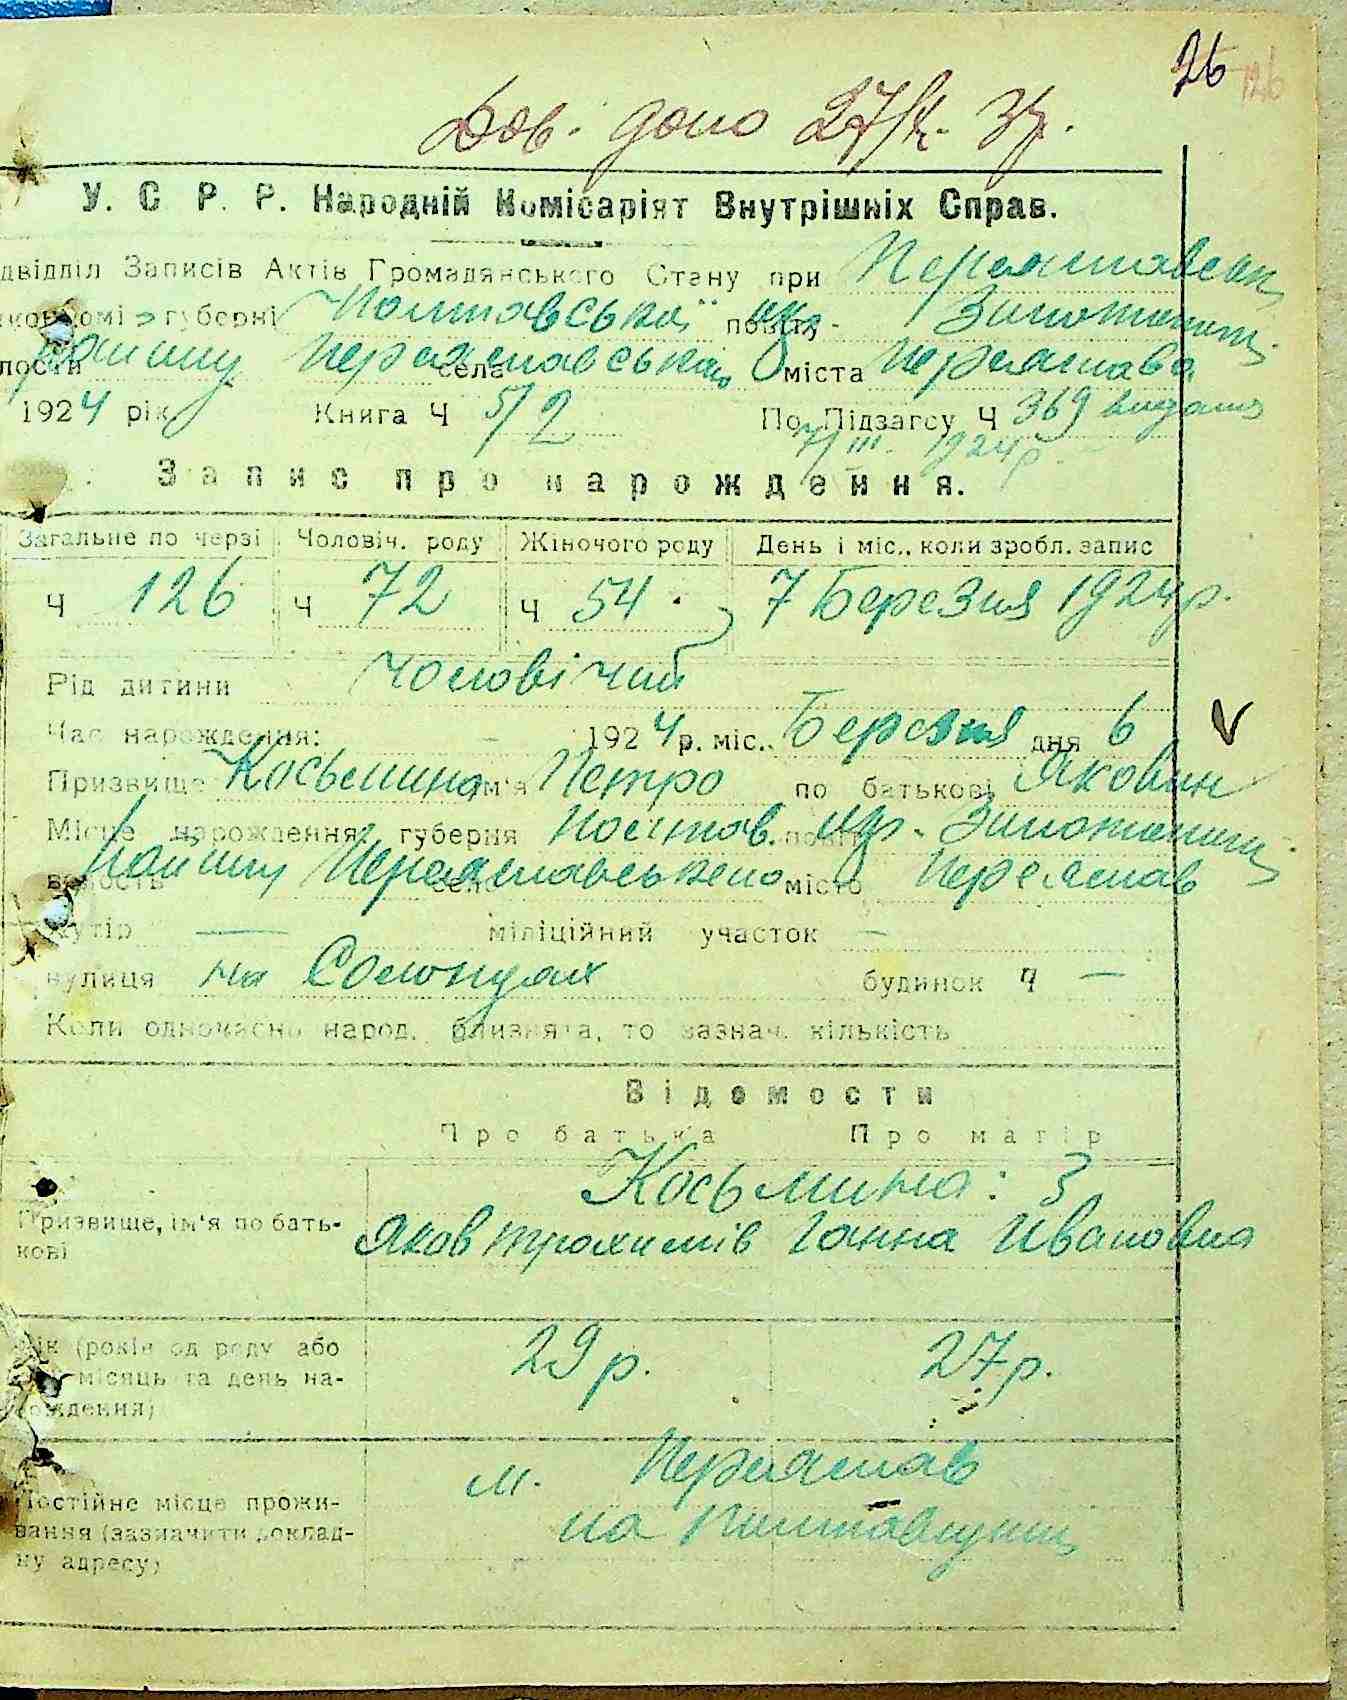 26 126
Дов. дано 27/ 37.
У. С. Р. Р. Народній Комісаріят Внутрішніх Справ.
двідліл Записів Актів Громадянського Стану при Переяславськ
губерні Полтавської повіту окр. Золотоніськ
лости району Переяславськ села міста Переяслава
1924 рік Книга Ч 5/2 По Підзагсу Ч 369 видано
7/III. 1924 р.
Запис про народження.
Загальне по черзі Чоловіч. роду Жіночого роду День і міс., коли зробл. запис
Ч 126 Ч 72 Ч 54 7 Березня 1924 р.
Рід дитини чоловічий
Час народження: 1924 р. міс. Березня дня 6
Призвище Косьмина ім'я Петро по батькові Яковин
Місце народження, губерня Полтав. повіт окр. Золотоніськ
волость району Переяславського село місто Переяслав
хутір — міліційний участок —
вулиця на Солонцях будинок Ч —
Коли одночасно народ. близнята, то зазнач. кількість
Відомости
Про батька Про матір
Косьмина: З
Призвище, ім'я по бать- Яков Трохимів Ганна Ивановна
кові
Вік (років од роду або 29 р. 27 р.
місяць та день на-
рождення)
м. Переяслав
Постійне місце прожи-
вання (зазначити доклад- на
ну адресу)